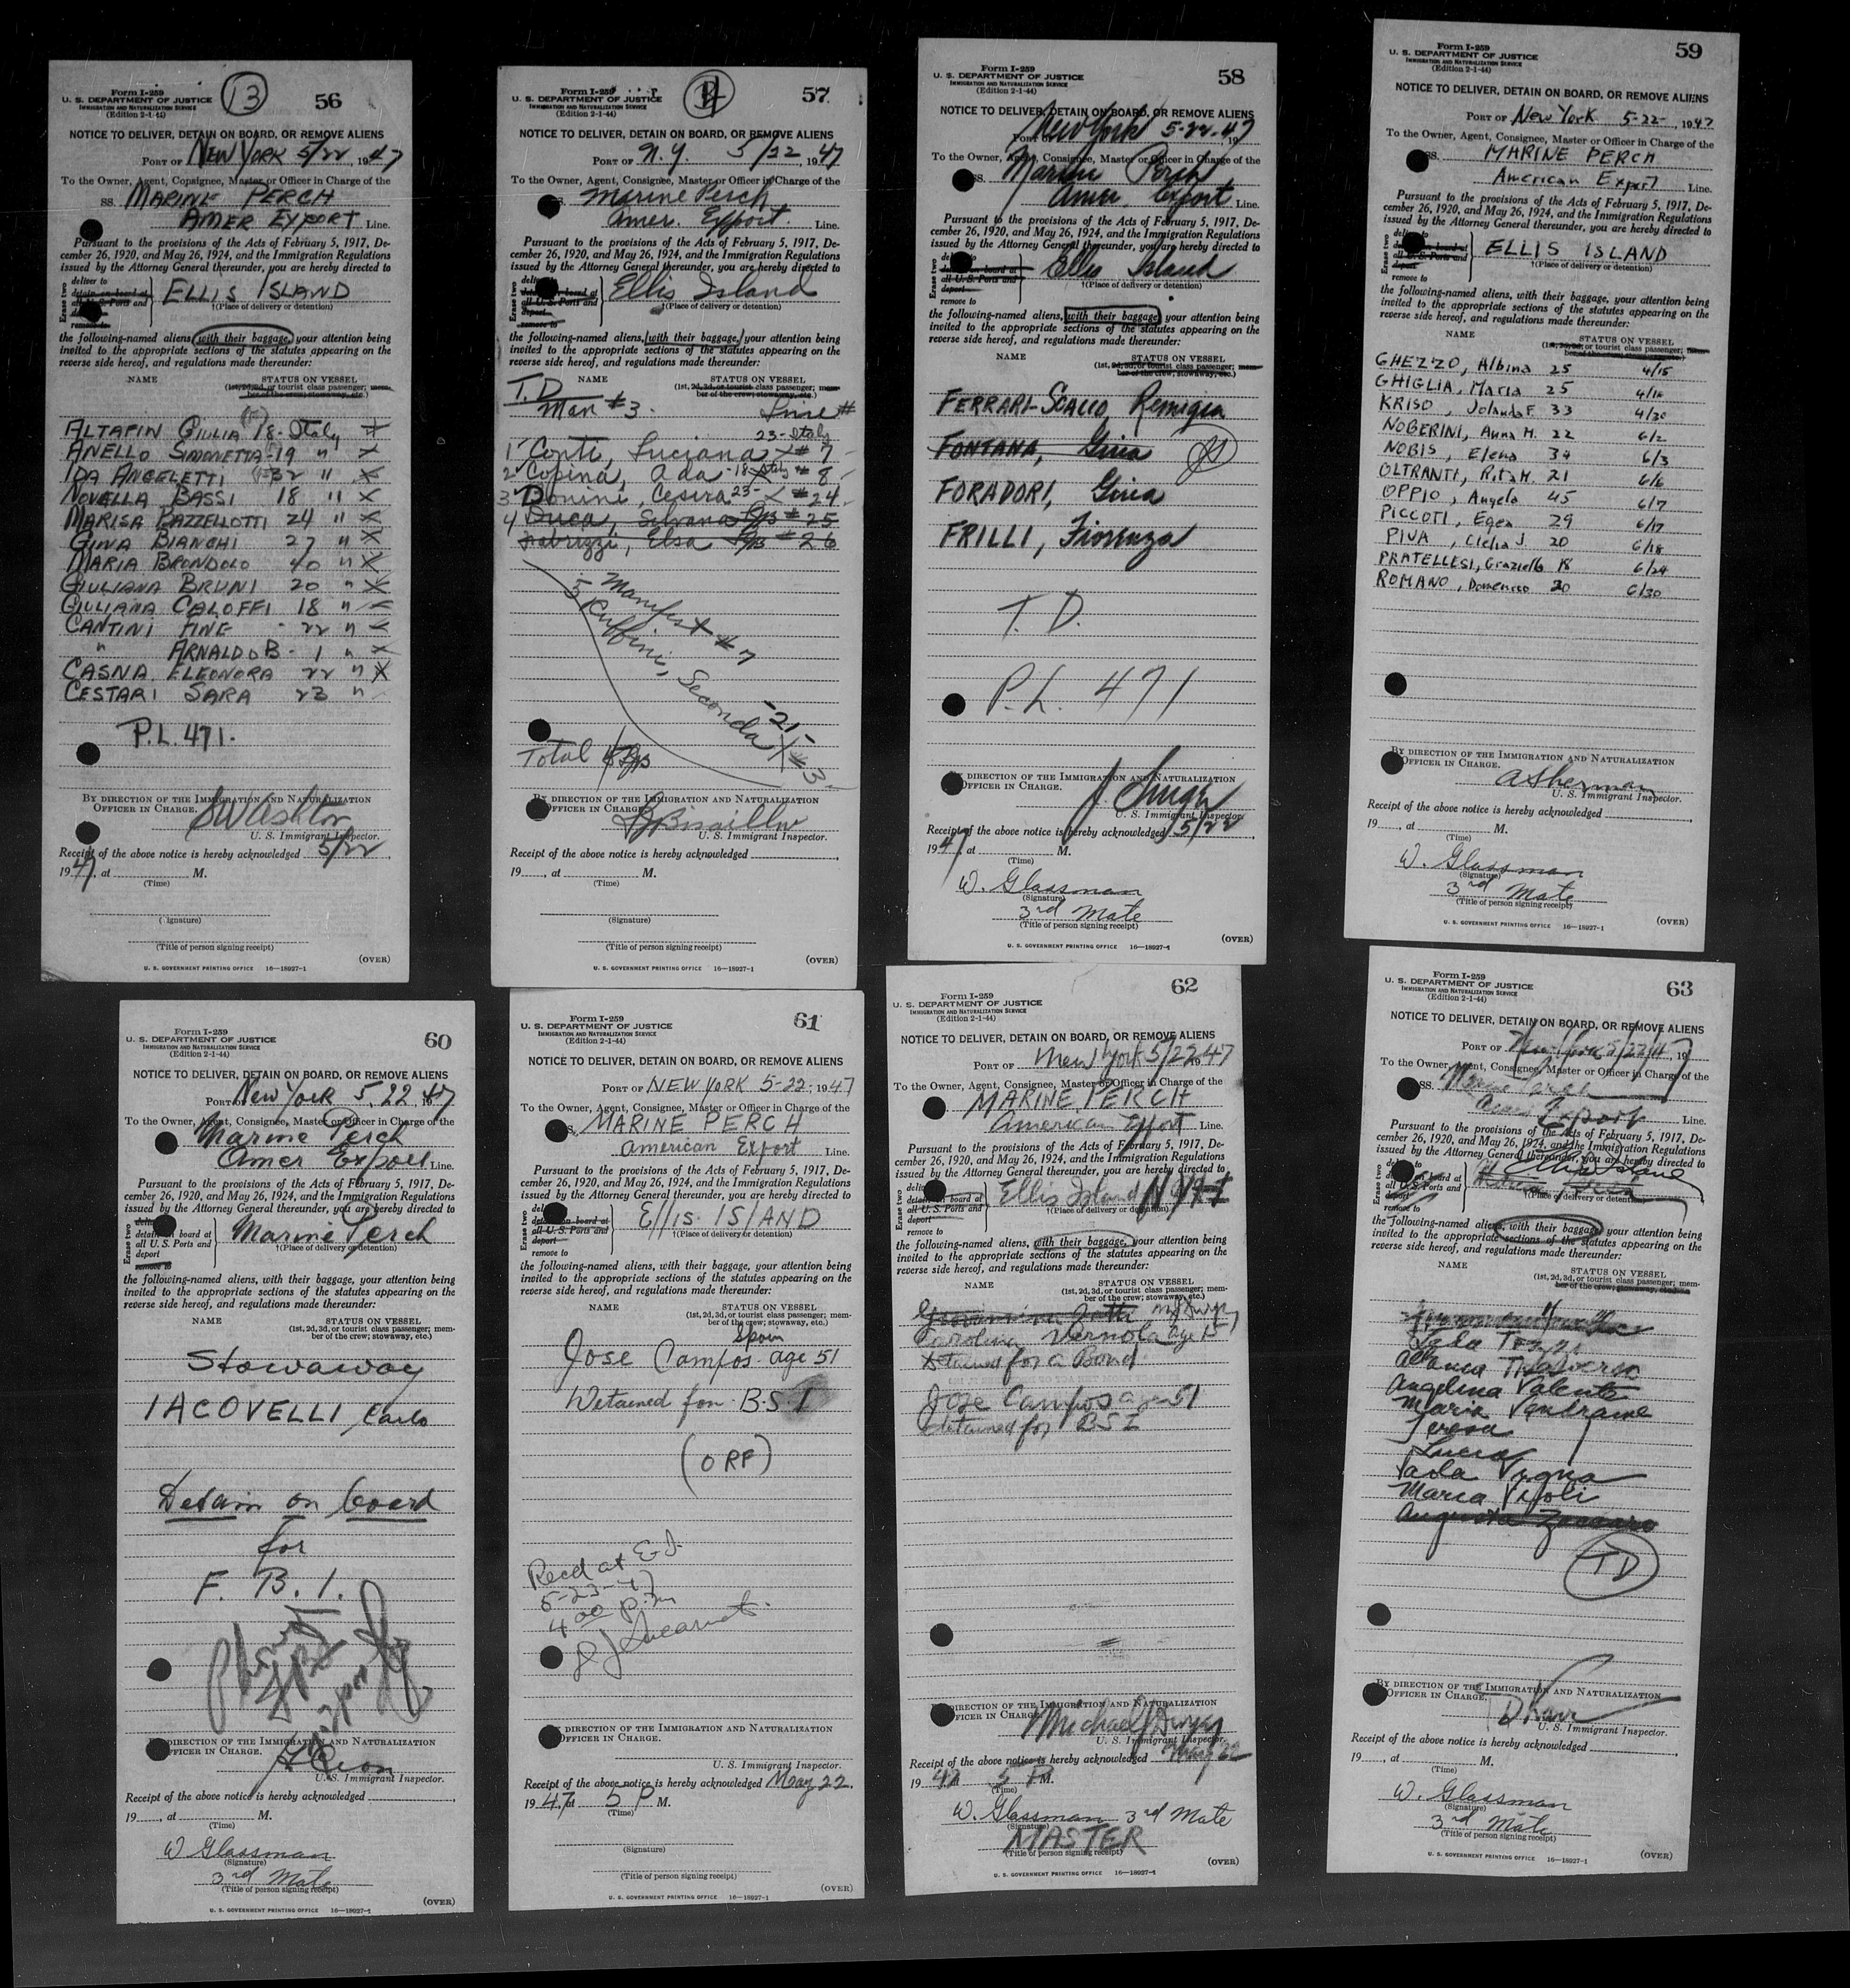 Form I-259
U. S. DEPARTMENT OF JUSTICE
IMMIGRATION AND NATURALIZATION SERVICE
(Edition 2-1-44)
13
56
NOTICE TO DELIVER, DETAIN ON BOARD, OR REMOVE ALIENS
PORT OF NEW YORK 5/22, 1947
To the Owner, Agent, Consignee, Master or Officer in Charge of the
SS. MARINE PERCH
AMER EXPORT Line.
Pursuant to the provisions of the Acts of February 5, 1917, De-
cember 26, 1920, and May 26, 1924, and the Immigration Regulations
issued by the Attorney General thereunder, you are hereby directed to
Erase two
deliver to
detain on board at
all U. S. Ports and
remove to
ELLIS ISLAND
†(Place of delivery or detention)
the following-named aliens, with their baggage, your attention being
invited to the appropriate sections of the statutes appearing on the
reverse side hereof, and regulations made thereunder:
NAME STATUS ON VESSEL
(1st, 2d, 3d, or tourist class passenger; mem-
ber of the crew; stowaway, etc.)
ALTAPIN GIULIA 18 - Italy X
ANELLO SIMONETTA - 19 " X
IDA ANGELETTI 32 " X
NOVELLA BASSI 18 " X
MARISA BAZZELLOTTI 24 " X
GINA BIANCHI 27 " X
MARIA BRONDOLO 40 " X
GIULIANA BRUNI 20 " X
GIULIANA CALOFFI 18 " X
CANTINI FINE - 22 " X
" ARNALDO B - 1 " X
CASNA ELEONORA 22 " X
CESTARI SARA 23 "
P.L. 471.
BY DIRECTION OF THE IMMIGRATION AND NATURALIZATION
OFFICER IN CHARGE.
SW Ashton
U. S. Immigrant Inspector.
Receipt of the above notice is hereby acknowledged 5/22,
1947, at M.
(Time)
(Signature)
(Title of person signing receipt)
(OVER)
U. S. GOVERNMENT PRINTING OFFICE 16—18927-1
Form I-259
U. S. DEPARTMENT OF JUSTICE
IMMIGRATION AND NATURALIZATION SERVICE
(Edition 2-1-44)
57
NOTICE TO DELIVER, DETAIN ON BOARD, OR REMOVE ALIENS
PORT OF N.Y. 5/22, 1947
To the Owner, Agent, Consignee, Master or Officer in Charge of the
Marine Perch
Amer. Export. Line.
Pursuant to the provisions of the Acts of February 5, 1917, De-
cember 26, 1920, and May 26, 1924, and the Immigration Regulations
issued by the Attorney General thereunder, you are hereby directed to
Erase two
detain on board at
all U. S. Ports and
deport
remove to
Ellis Island
†(Place of delivery or detention)
the following-named aliens, with their baggage, your attention being
invited to the appropriate sections of the statutes appearing on the
reverse side hereof, and regulations made thereunder:
NAME STATUS ON VESSEL
(1st, 2d, 3d, or tourist class passenger; mem-
ber of the crew, stowaway, etc.)
T.D
Man #3. Line #
1 Conti, Luciana 23 - Italy X # 7
2 Copina, Ada - 18 - Italy # 8
3 Donini, Cesira 23 - X # 24
4 Duca, Silvana # 25
Fabrizzi, Elsa # 26
Manifest # 7
5 Ruffini, Seconda - 21 - X # 3
Total
BY DIRECTION OF THE IMMIGRATION AND NATURALIZATION
OFFICER IN CHARGE.
U. S. Immigrant Inspector.
Receipt of the above notice is hereby acknowledged
19 , at M.
(Time)
(Signature)
(Title of person signing receipt)
(OVER)
U. S. GOVERNMENT PRINTING OFFICE 16—18927-1
Form I-259
U. S. DEPARTMENT OF JUSTICE
IMMIGRATION AND NATURALIZATION SERVICE
(Edition 2-1-44)
58
NOTICE TO DELIVER, DETAIN ON BOARD, OR REMOVE ALIENS
Port of New York 5-22-47
To the Owner, Agent, Consignee, Master or Officer in Charge of the
SS. Marine Perch
Amer. Export Line.
Pursuant to the provisions of the Acts of February 5, 1917, De-
cember 26, 1920, and May 26, 1924, and the Immigration Regulations
issued by the Attorney General thereunder, you are hereby directed to
Erase two
detain on board at
all U. S. Ports and
deport
remove to
Ellis Island
†(Place of delivery or detention)
the following-named aliens, with their baggage, your attention being
invited to the appropriate sections of the statutes appearing on the
reverse side hereof, and regulations made thereunder:
NAME STATUS ON VESSEL
(1st, 2d, 3d, or tourist class passenger; mem-
ber of the crew, stowaway, etc.)
FERRARI-SCACCO, Remigia
FONTANA, Gina
FORADORI, Gina
FRILLI, Fiorenza
T. D.
P.L. 471
BY DIRECTION OF THE IMMIGRATION AND NATURALIZATION
OFFICER IN CHARGE.
U. S. Immigrant Inspector.
Receipt of the above notice is hereby acknowledged 5/22
1947, at M.
(Time)
W. Glassman
(Signature)
3rd Mate
(Title of person signing receipt)
(OVER)
U. S. GOVERNMENT PRINTING OFFICE 16—18927-1
Form I-259
U. S. DEPARTMENT OF JUSTICE
IMMIGRATION AND NATURALIZATION SERVICE
(Edition 2-1-44)
59
NOTICE TO DELIVER, DETAIN ON BOARD, OR REMOVE ALIENS
PORT OF New York 5-22-, 1947
To the Owner, Agent, Consignee, Master or Officer in Charge of the
SS. MARINE PERCH
American Export Line.
Pursuant to the provisions of the Acts of February 5, 1917, De-
cember 26, 1920, and May 26, 1924, and the Immigration Regulations
issued by the Attorney General thereunder, you are hereby directed to
Erase two
detain on board at
all U. S. Ports and
deport
remove to
ELLIS ISLAND
†(Place of delivery or detention)
the following-named aliens, with their baggage, your attention being
invited to the appropriate sections of the statutes appearing on the
reverse side hereof, and regulations made thereunder:
NAME STATUS ON VESSEL
(1st, 2d, 3d, or tourist class passenger; mem-
ber of the crew, stowaway, etc.)
GHEZZO, Albina 25 4/15
GHIGLIA, Maria 25 4/18
KRISO, Jolanda F. 33 4/30
NOBERINI, Anna M. 22 6/2
NOBIS, Elena 34 6/3
OLTRANTI, Rita M. 21 6/6
OPPIO, Angela 45 6/7
PICCOTI, Egea 29 6/17
PIVA, Clelia J. 20 6/18
PRATELLESI, Graziella 18 6/24
ROMANO, Domenico 20 6/30
BY DIRECTION OF THE IMMIGRATION AND NATURALIZATION
OFFICER IN CHARGE.
A Sherman
U. S. Immigrant Inspector.
Receipt of the above notice is hereby acknowledged
19 , at M.
(Time)
W. Glassman
(Signature)
3rd Mate
(Title of person signing receipt)
(OVER)
U. S. GOVERNMENT PRINTING OFFICE 16—18927-1
Form I-259
U. S. DEPARTMENT OF JUSTICE
IMMIGRATION AND NATURALIZATION SERVICE
(Edition 2-1-44)
60
NOTICE TO DELIVER, DETAIN ON BOARD, OR REMOVE ALIENS
PORT OF New York 5.22 1947
To the Owner, Agent, Consignee, Master or Officer in Charge of the
Marine Perch
Amer Export Line.
Pursuant to the provisions of the Acts of February 5, 1917, De-
cember 26, 1920, and May 26, 1924, and the Immigration Regulations
issued by the Attorney General thereunder, you are hereby directed to
Erase two
detain on board at
all U. S. Ports and
deport
remove to
Marine Perch
†(Place of delivery or detention)
the following-named aliens, with their baggage, your attention being
invited to the appropriate sections of the statutes appearing on the
reverse side hereof, and regulations made thereunder:
NAME STATUS ON VESSEL
(1st, 2d, 3d, or tourist class passenger; mem-
ber of the crew; stowaway, etc.)
Stowaway
IACOVELLI, Carlo
Detain on board
for
F. B. I.
BY DIRECTION OF THE IMMIGRATION AND NATURALIZATION
OFFICER IN CHARGE.
U. S. Immigrant Inspector.
Receipt of the above notice is hereby acknowledged
19 , at M.
(Time)
W Glassman
(Signature)
3rd Mate
(Title of person signing receipt)
(OVER)
U. S. GOVERNMENT PRINTING OFFICE 16—18927-1
Form I-259
U. S. DEPARTMENT OF JUSTICE
IMMIGRATION AND NATURALIZATION SERVICE
(Edition 2-1-44)
61
NOTICE TO DELIVER, DETAIN ON BOARD, OR REMOVE ALIENS
PORT OF NEW YORK 5-22-, 1947
To the Owner, Agent, Consignee, Master or Officer in Charge of the
MARINE PERCH
American Export Line.
Pursuant to the provisions of the Acts of February 5, 1917, De-
cember 26, 1920, and May 26, 1924, and the Immigration Regulations
issued by the Attorney General thereunder, you are hereby directed to
Erase two
detain on board at
all U. S. Ports and
deport
remove to
Ellis ISLAND
†(Place of delivery or detention)
the following-named aliens, with their baggage, your attention being
invited to the appropriate sections of the statutes appearing on the
reverse side hereof, and regulations made thereunder:
NAME STATUS ON VESSEL
(1st, 2d, 3d, or tourist class passenger; mem-
ber of the crew; stowaway, etc.)
Spain
Jose Campos - age 51
Detained for B.S.I
(ORF)
Recd at E.I.
5-23-47
4 00 P.m
BY DIRECTION OF THE IMMIGRATION AND NATURALIZATION
OFFICER IN CHARGE.
U. S. Immigrant Inspector.
Receipt of the above notice is hereby acknowledged May 22,
1947, at 5 P M.
(Time)
(Signature)
(Title of person signing receipt)
(OVER)
U. S. GOVERNMENT PRINTING OFFICE 16—18927-1
Form I-259
U. S. DEPARTMENT OF JUSTICE
IMMIGRATION AND NATURALIZATION SERVICE
(Edition 2-1-44)
62
NOTICE TO DELIVER, DETAIN ON BOARD, OR REMOVE ALIENS
PORT OF New York 5/22 1947
To the Owner, Agent, Consignee, Master or Officer in Charge of the
MARINE PERCH
American Export Line.
Pursuant to the provisions of the Acts of February 5, 1917, De-
cember 26, 1920, and May 26, 1924, and the Immigration Regulations
issued by the Attorney General thereunder, you are hereby directed to
Erase two
detain on board at
all U. S. Ports and
deport
remove to
Ellis Island
†(Place of delivery or detention)
the following-named aliens, with their baggage, your attention being
invited to the appropriate sections of the statutes appearing on the
reverse side hereof, and regulations made thereunder:
NAME STATUS ON VESSEL
(1st, 2d, 3d, or tourist class passenger; mem-
ber of the crew; stowaway, etc.)
Carolina Vernola age 15
Detained for a Bond
Jose Campos age 51
detained for BSI
BY DIRECTION OF THE IMMIGRATION AND NATURALIZATION
OFFICER IN CHARGE.
Michael J Dwyer
U. S. Immigrant Inspector.
Receipt of the above notice is hereby acknowledged May 22
1947 5 P M.
(Time)
W. Glassman 3rd Mate
(Signature)
MASTER
(Title of person signing receipt)
(OVER)
U. S. GOVERNMENT PRINTING OFFICE 16—18927-1
Form I-259
U. S. DEPARTMENT OF JUSTICE
IMMIGRATION AND NATURALIZATION SERVICE
(Edition 2-1-44)
63
NOTICE TO DELIVER, DETAIN ON BOARD, OR REMOVE ALIENS
PORT OF New York 5/22/47, 19
To the Owner, Agent, Consignee, Master or Officer in Charge of the
SS. Marine Perch
Amer Export Line.
Pursuant to the provisions of the Acts of February 5, 1917, De-
cember 26, 1920, and May 26, 1924, and the Immigration Regulations
issued by the Attorney General thereunder, you are hereby directed to
Erase two
detain on board at
all U. S. Ports and
deport
remove to
Ellis Island
†(Place of delivery or detention)
the following-named aliens, with their baggage, your attention being
invited to the appropriate sections of the statutes appearing on the
reverse side hereof, and regulations made thereunder:
NAME STATUS ON VESSEL
(1st, 2d, 3d, or tourist class passenger; mem-
ber of the crew; stowaway, etc.)
Angelina Valente
Maria Vendrame
Teresa
Lucia
Paola Vigna
Maria Vitoli
Augusta
TD
BY DIRECTION OF THE IMMIGRATION AND NATURALIZATION
OFFICER IN CHARGE.
U. S. Immigrant Inspector.
Receipt of the above notice is hereby acknowledged
19 , at M.
(Time)
W. Glassman
(Signature)
3rd Mate
(Title of person signing receipt)
(OVER)
U. S. GOVERNMENT PRINTING OFFICE 16—18927-1